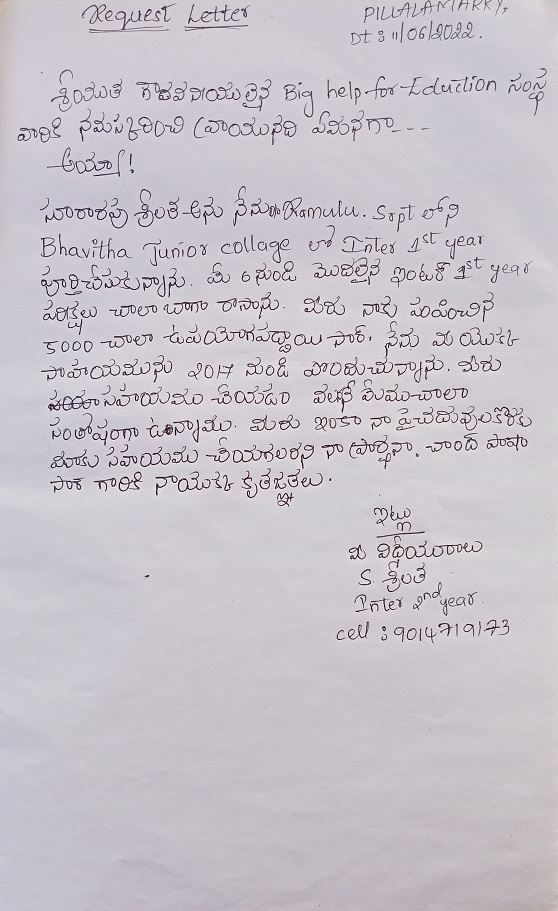 Request Letter
PILLALAMARRY,
Dt : 11/06/2022.
శ్రీయుత గౌరవనీయులైన Big help-for-Eduction సంస్థ
వారికి నమస్కరించి వ్రాయునది ఏమనగా---
అయ్యా!
సూరారపు శ్రీలత అను నేను D/o Ramulu. Srpt లోని
Bhavitha Junior collage లో Inter 1st year
పూర్తిచేసుకున్నాను. మే 6 నుండి మొదలైన ఇంటర్ 1st year
పరీక్షలు చాలా బాగా రాసాను. మీరు నాకు పంపించిన
5000 చాలా ఉపయోగపడ్డాయి సార్. నేను మీ యొక్క
సాహయమును 2017 నుండి పొందుచున్నాను. మీరు
సహాయము చేయడం వలనే మేము చాలా
సంతోషంగా ఉన్నాము. మీరు ఇంకా నా పైచదువులకొరకు
మాకు సహాయము చేయగలరని నా ప్రార్థన. చాంద్ పాషా
సార్ గారికి నాయొక్క కృతజ్ఞతలు.
ఇట్లు
మీ విధేయురాలు
S. శ్రీలత
Inter 2nd year.
cell : 9014719173